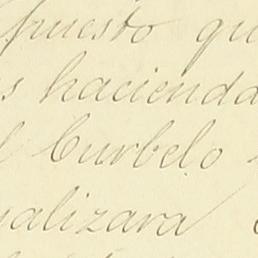 puesto qu
s hacienda
l Curbelo
alizara